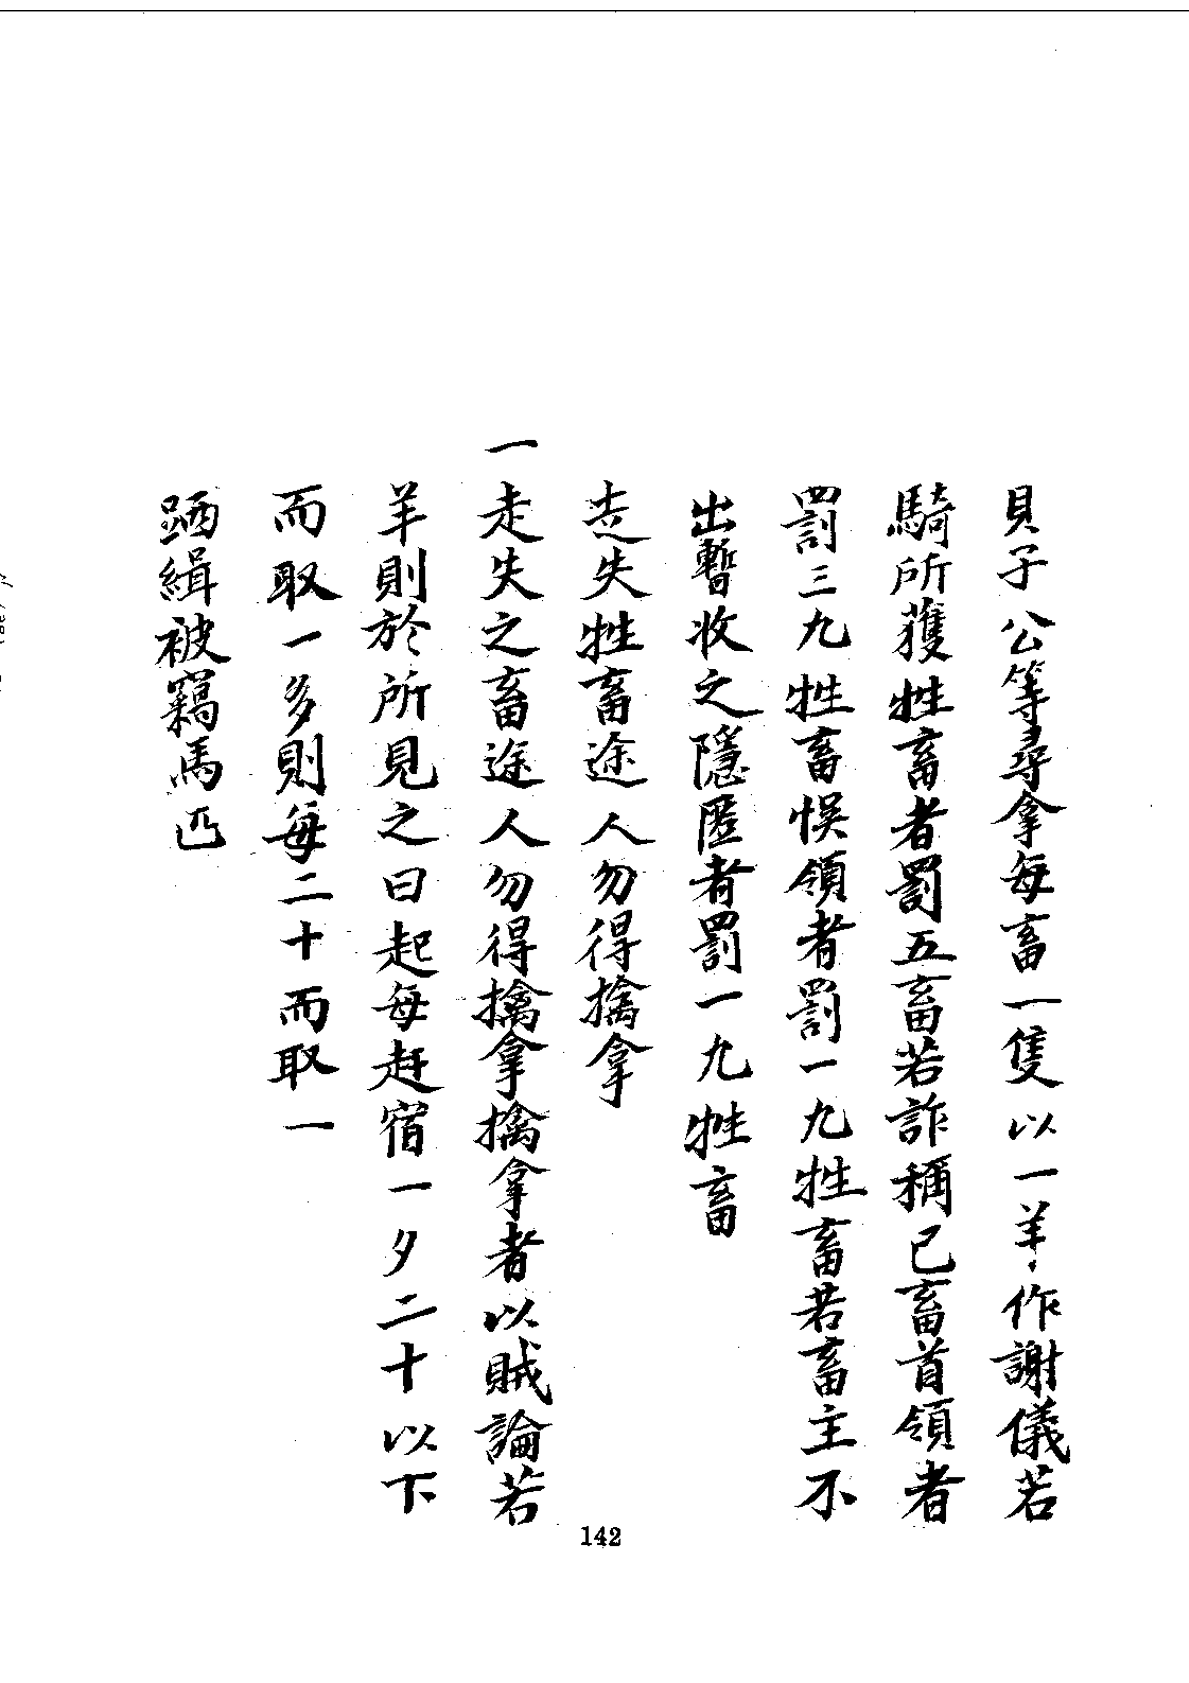 貝子公等尋拿每畜一隻以一羊作謝儀若
騎所獲牲畜者罰五畜若詐稱己畜首領者
罰三九牲畜悞領者罰一九牲畜若畜主不
出暫收之隱匿者罰一九牲畜
走失牲畜途人勿得擒拿
一走失之畜途人勿得擒拿擒拿者以賊論若
羊則於所見之日起每赶宿一夕二十以下
而取一多則每二十而取一
跴緝被竊馬匹
142